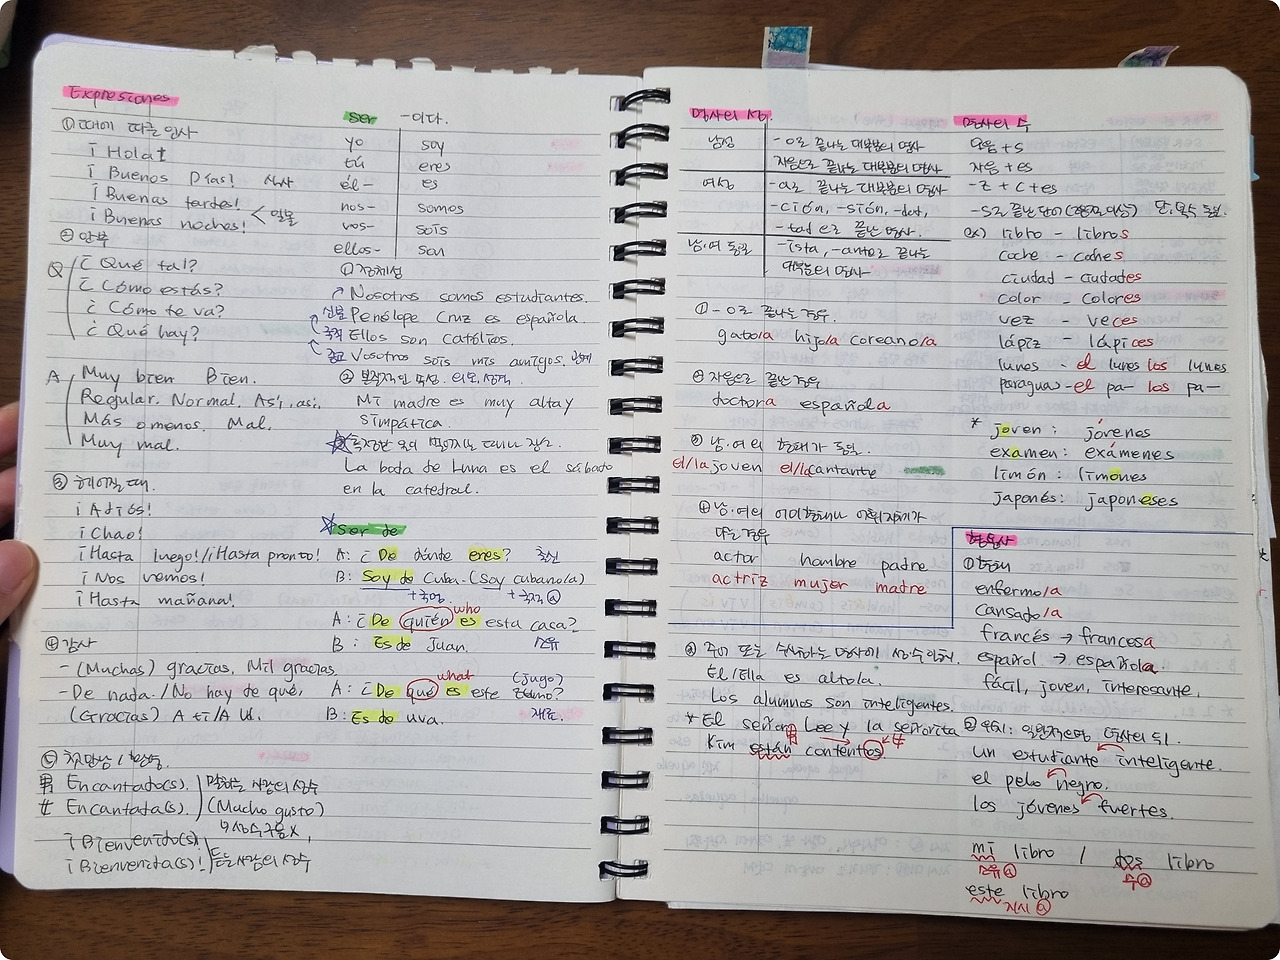 Expresiones
① 때에 따른 인사
¡Hola!
¡Buenos Días! 식사
¡Buenas tardes!
¡Buenas noches! < 일몰
② 안부
Q ¿Qué tal?
¿Cómo estás?
¿Cómo te va?
¿Qué hay?
A Muy bien Bien.
Regular. Normal. Así, así.
Más o menos. Mal.
Muy mal.
③ 헤어질 때.
¡Adiós!
¡Chao!
¡Hasta luego! / ¡Hasta pronto!
¡Nos vemos!
¡Hasta mañana!
④ 감사
- (Muchas) gracias. Mil gracias.
- De nada. / No hay de qué,
(Gracias) A ti / A Ud.
男 Encantado(s). 말하는 사람의 성수
女 Encantada(s). (Mucho gusto)
↳ 성수구분 X,
¡Bienvenido(s)
¡Bienvenida(s)! 듣는 사람의 성수
ser -이다.
yo soy
tú eres
él- es
nos- somos
vos- sois
ellos- son
① 정체성
Nosotros somos estudiantes.
신분 Penélope Cruz es española.
국적 Ellos son católicos.
종교 Vosotros sois mis amigos. 관계
② 본질적인 특성. 외모, 성격
Mi madre es muy alta y
simpática.
La boda de Luna es el sábado
en la catedral.
Ser de
A: ¿De dónde eres? 출신
B: Soy de Cuba. (Soy cubano/a)
+ 국명 + 국적 ⓐ
who
A: ¿De quién es esta casa?
B: Es de Juan. 소유
what (jugo)
A: ¿De qué es este zumo?
B: Es de uva. 재료.
명사의 성.
남성 -o로 끝나는 대부분의 명사
자음으로 끝나는 대부분의 명사
여성 -a로 끝나는 대부분의 명사
-ción, -sión, -dad,
-tad로 끝난 명사.
남.여 동일 -ista, -ante로 끝나는
대부분의 명사
① -o로 끝나는 경우.
gato/a hijo/a coreano/a
② 자음으로 끝난 경우
doctora española
③ 남.여의 형태가 동일.
el/la joven el/la cantante
④ 남.여의 어미형태나 어휘 자체가
다른 경우
actor hombre padre
actriz mujer madre
③ 주어 또는 수식하는 명사에 성수일치.
Él/Ella es alto/a.
Los alumnos son inteligentes.
* El señor Lee y la señorita
Kim están contentos
명사의 수
모음 + s
자음 + es
-z + c + es
ex) libro - libros
coche - coches
ciudad - ciudades
color - colores
vez - veces
lápiz - lápices
lunes - el lunes los lunes
paraguas - el pa- los pa-
* joven : jóvenes
examen : exámenes
limón : limones
japonés : japoneses
형용사
① 형태
enfermo/a
cansado/a
francés → francesa
español → española
fácil, joven, interesante,
② 위치: 일반적으로 명사의 뒤.
un estudiante inteligente.
el pelo negro.
los jóvenes fuertes.
mi libro / dos libro
소유 ⓐ 수 ⓐ
este libro
지시 ⓐ